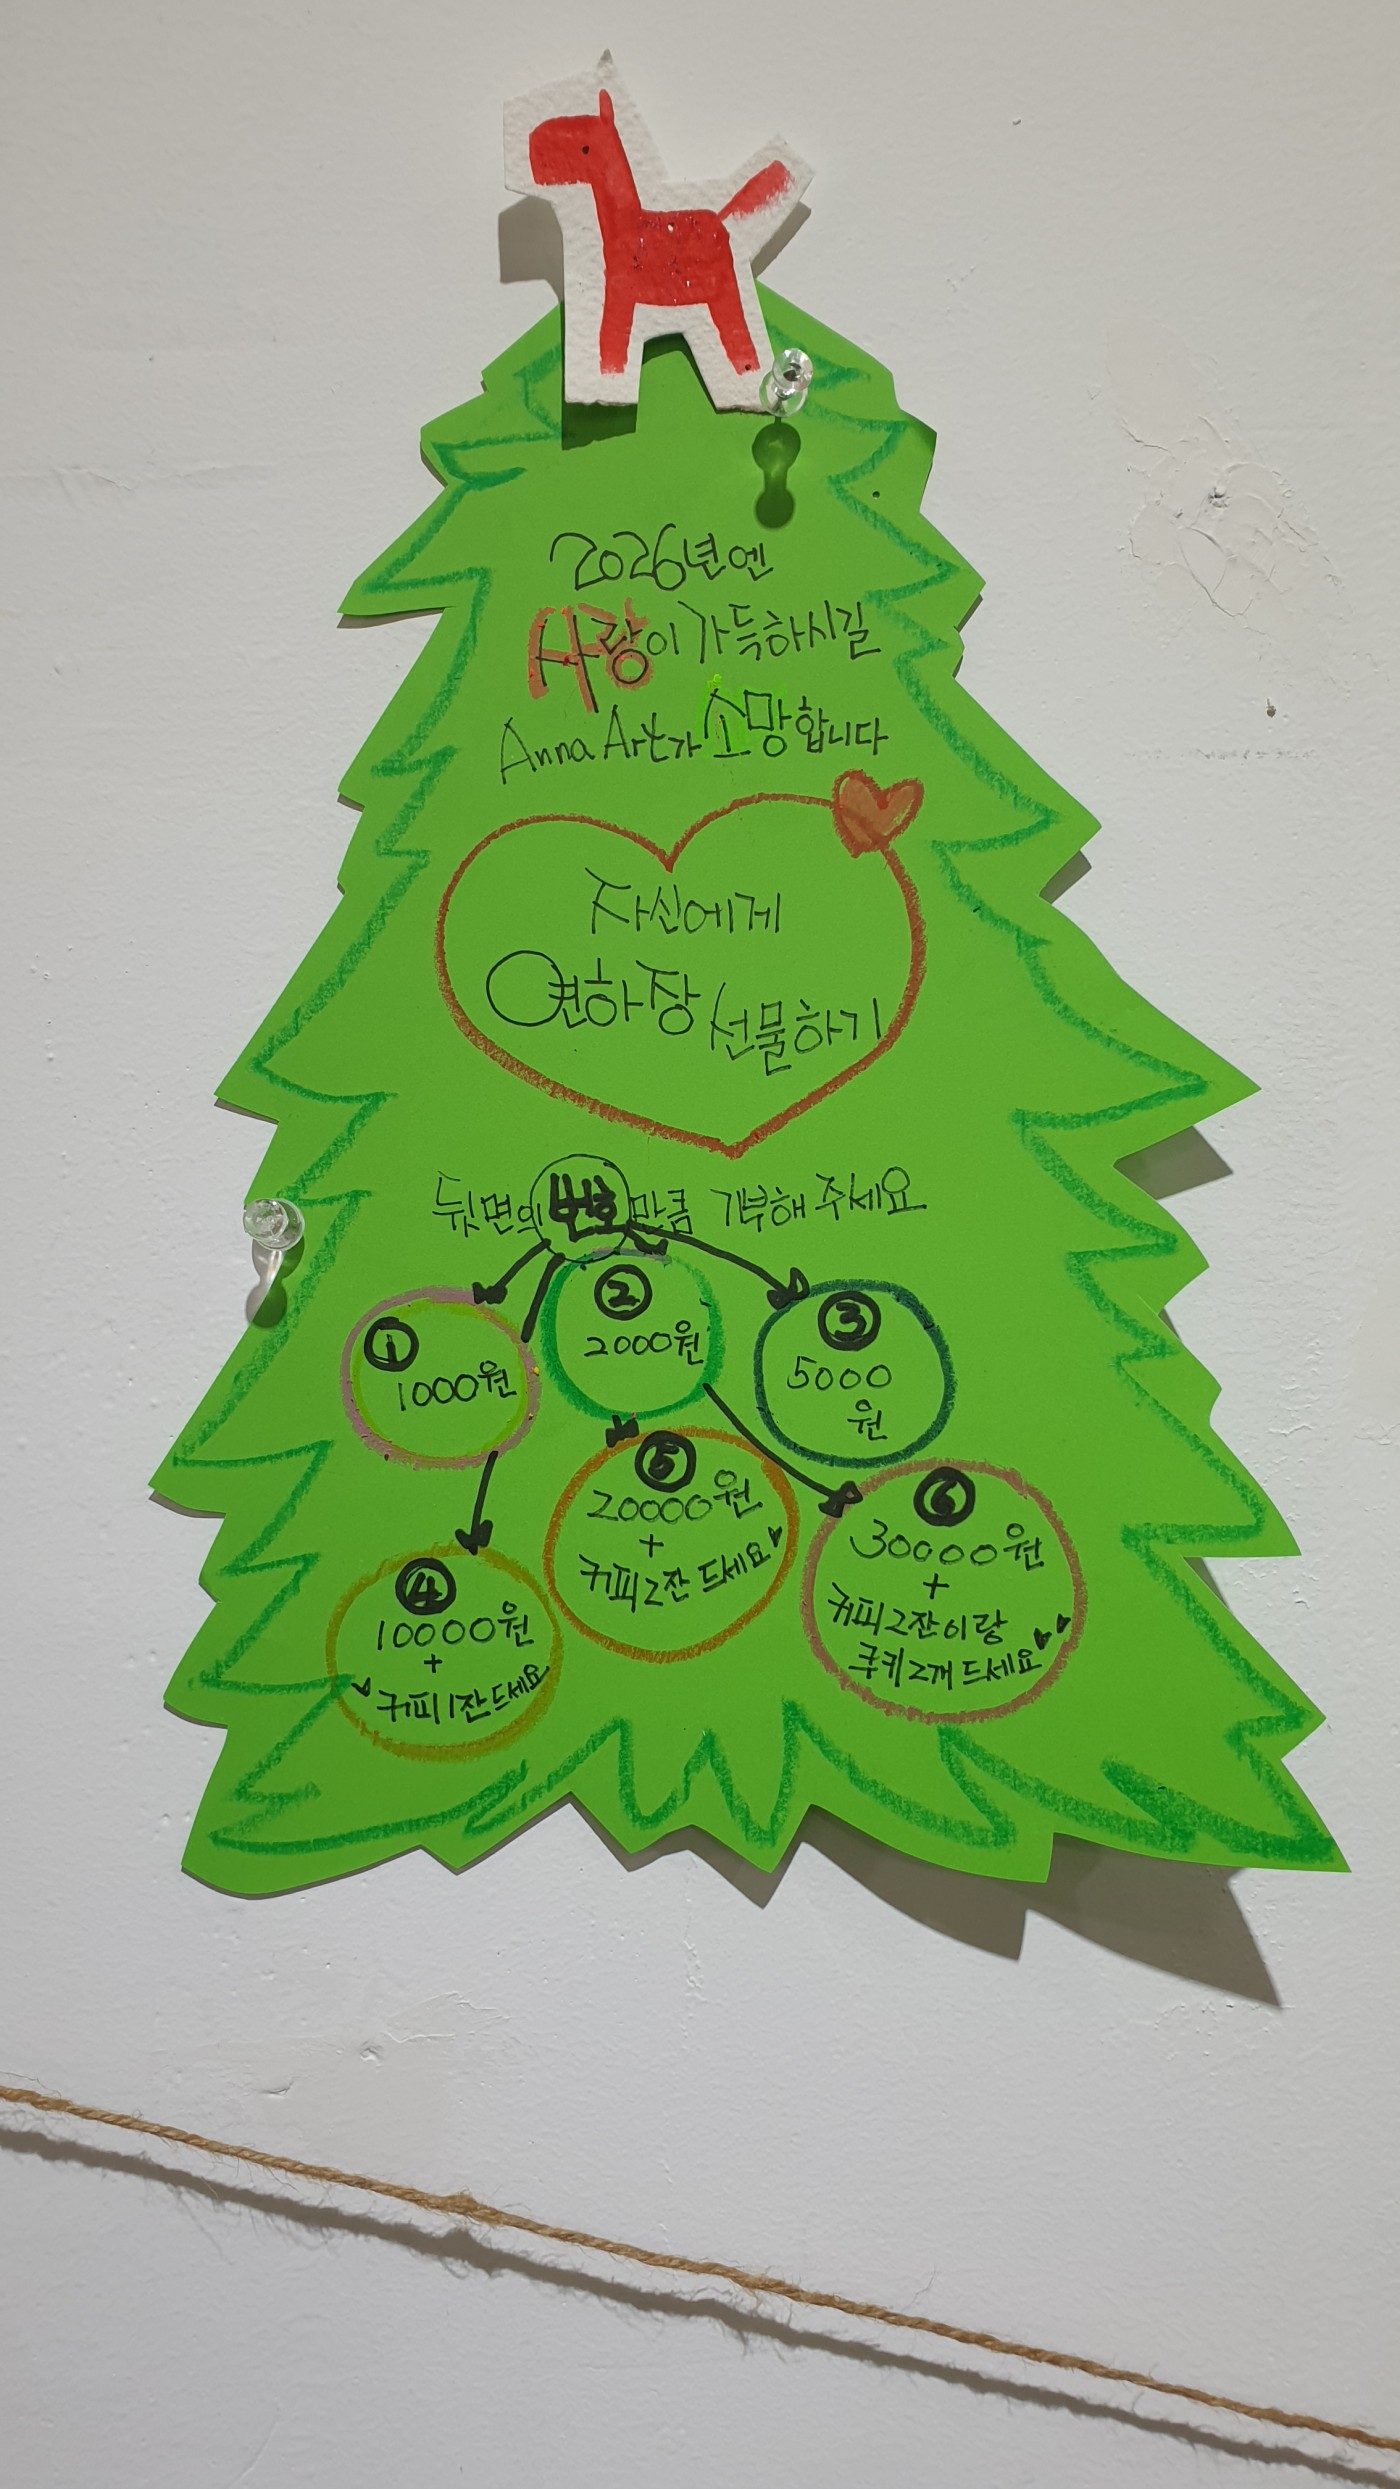 2026년엔
사랑이 가득하시길
Anna Art가 소망합니다
자신에게
연하장 선물하기
뒷면의 번호만큼 기부해 주세요
①
1000원
②
2000원
③
5000
원
④
10000원
+
커피1잔드세요
⑤
20000원
+
커피2잔 드세요
⑥
30000원
+
커피2잔이랑
쿠키2개 드세요